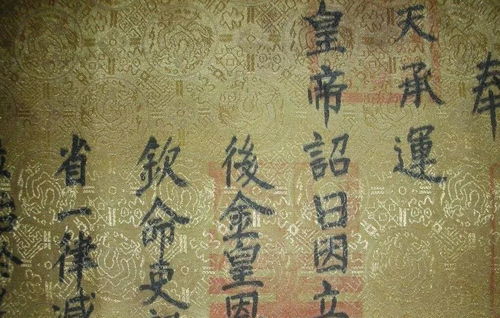 奉
天承運
皇帝詔曰因立
後金皇因
欽命吏
省一律減